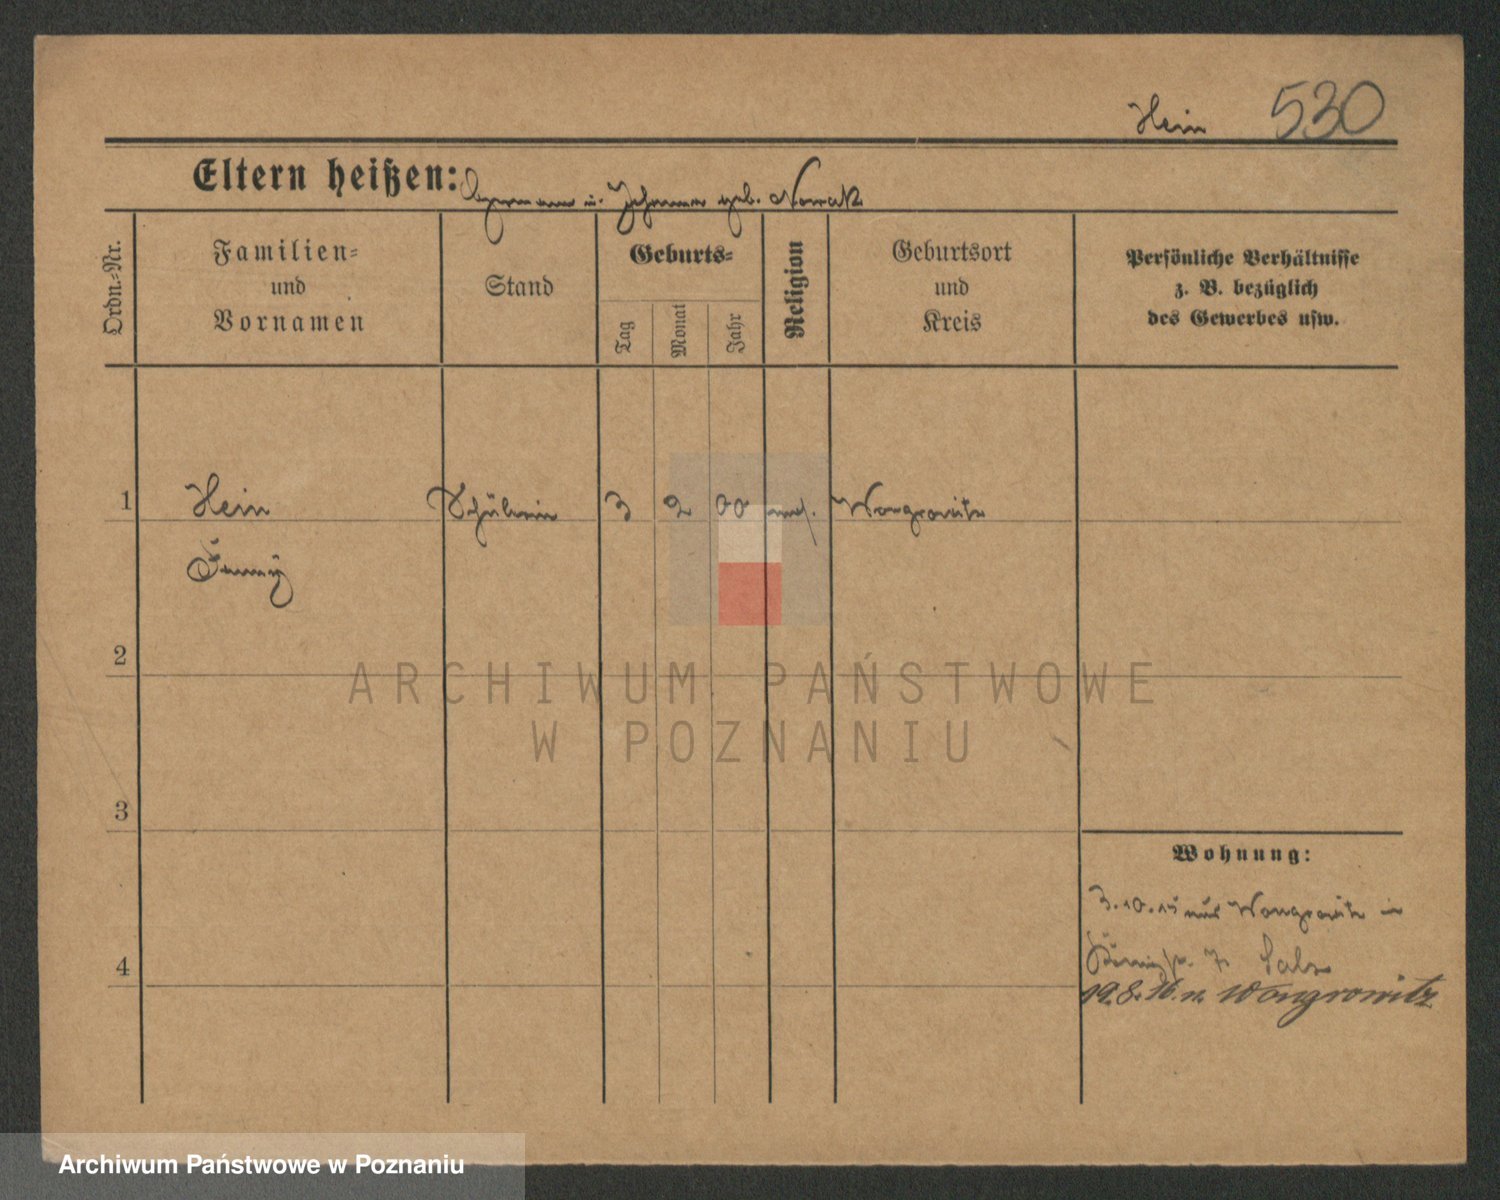 Hein 530
Eltern heißen: Hermann u. Johanna geb. Nowak
Ordn.-Nr.
Familien-
und
Vornamen
Stand
Geburts-
Tag
Monat
Jahr
Religion
Geburtsort
und
Kreis
Persönliche Verhältnisse
z. B. bezüglich
des Gewerbes usw.
1 Hein Schülerin 3 2 00 Wongrowitz
2
3
4
Wohnung:
3.10.15 aus Wongrowitz in
7 Salz
19.8.16. n. Wongrowitz
ARCHIWUM PAŃSTWOWE
W POZNANIU
Archiwum Państwowe w Poznaniu